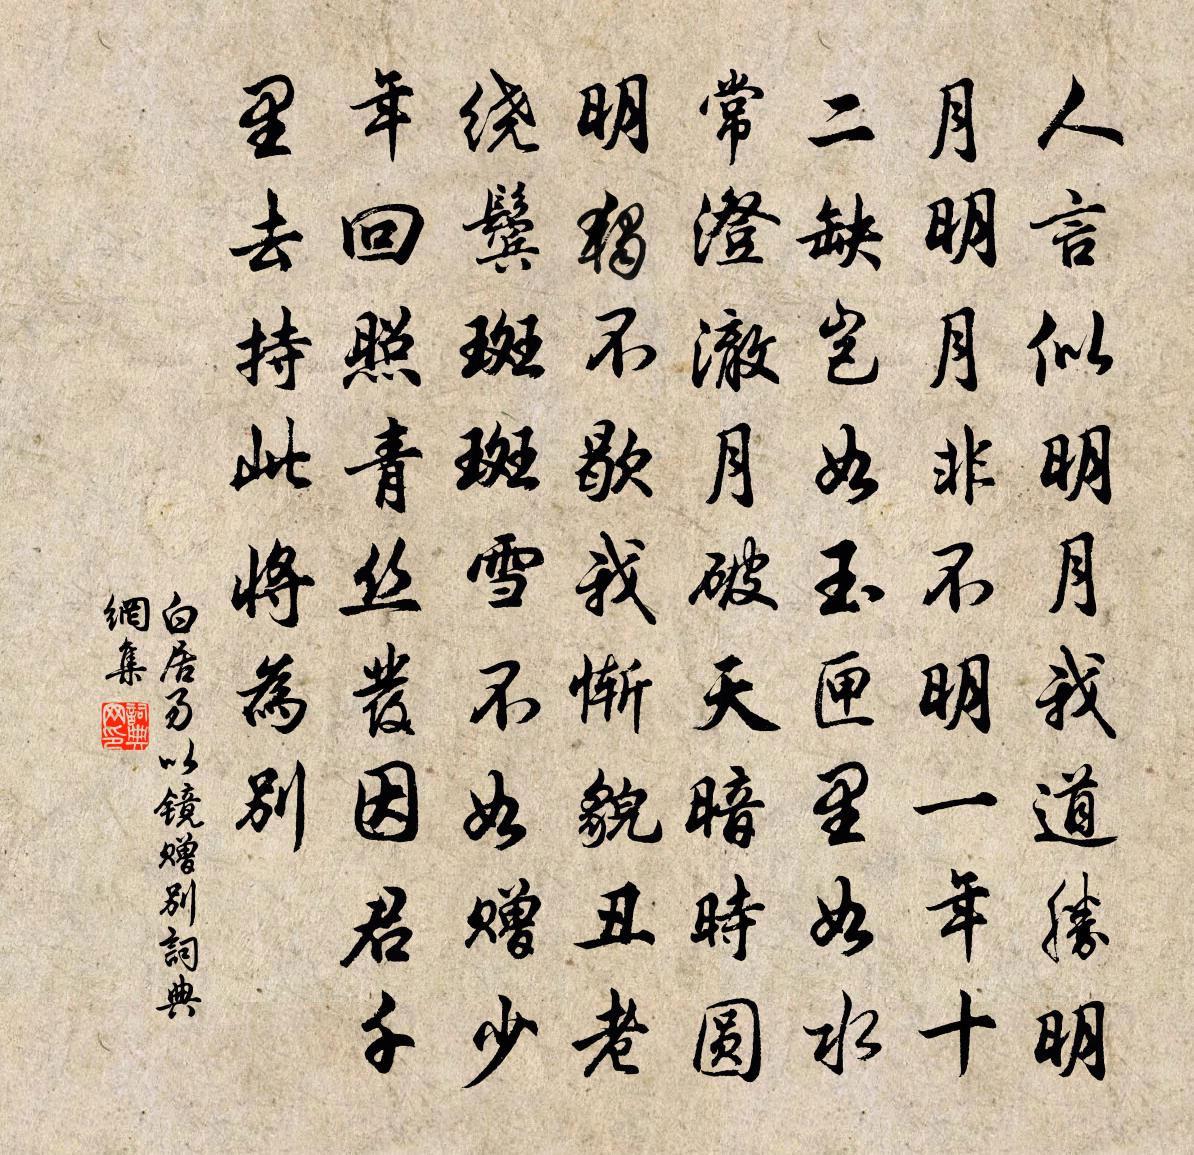 人言似明月我道勝明
月明月非不明一年十
二缺岂如玉匣里如水
常澄澈月破天暗時圆
明獨不歇我惭貌丑老
绕鬓斑斑雪不如赠少
年回照青丝發因君千
里去持此將為别
白居易以镜赠别詞典
網集
詞典
网印